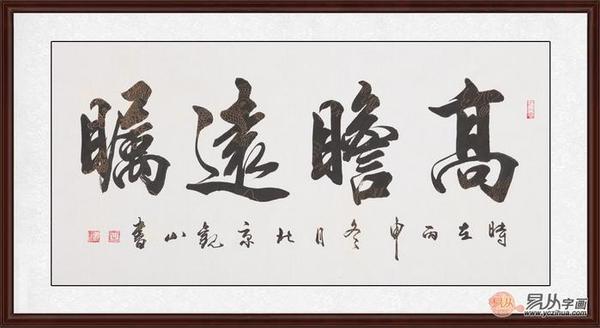 高瞻遠矚
時在丙申冬月北京觀山書
易从
易从字画
www.yczihua.com